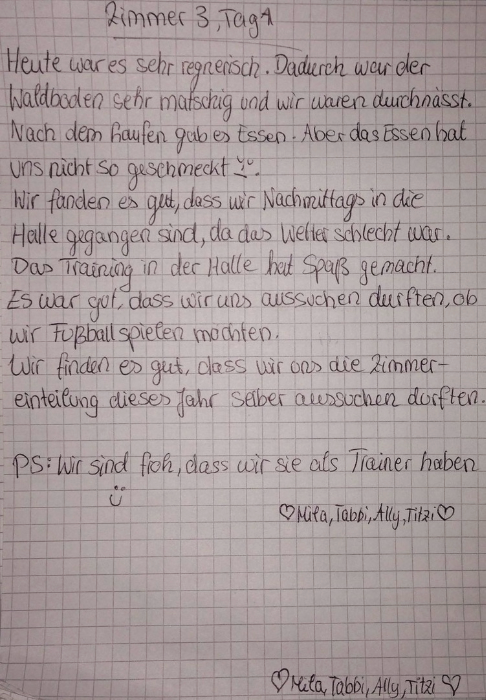 Zimmer 3, Tag 1
Heute war es sehr regnerisch. Dadurch war der
Waldboden sehr matschig und wir waren durchnässt.
Nach dem Laufen gab es Essen. Aber das Essen hat
uns nicht so geschmeckt
Wir fanden es gut, dass wir Nachmittags in die
Halle gegangen sind, da das Wetter schlecht war.
Das Training in der Halle hat Spaß gemacht.
Es war gut, dass wir uns aussuchen durften, ob
wir Fußball spielen mochten.
Wir finden es gut, dass wir uns die Zimmer-
einteilung dieses Jahr selber aussuchen durften.
PS: Wir sind froh, dass wir sie als Trainer haben
♡Mila, Tabbi, Ally, Titzi♡
♡Mila, Tabbi, Ally, Titzi♡